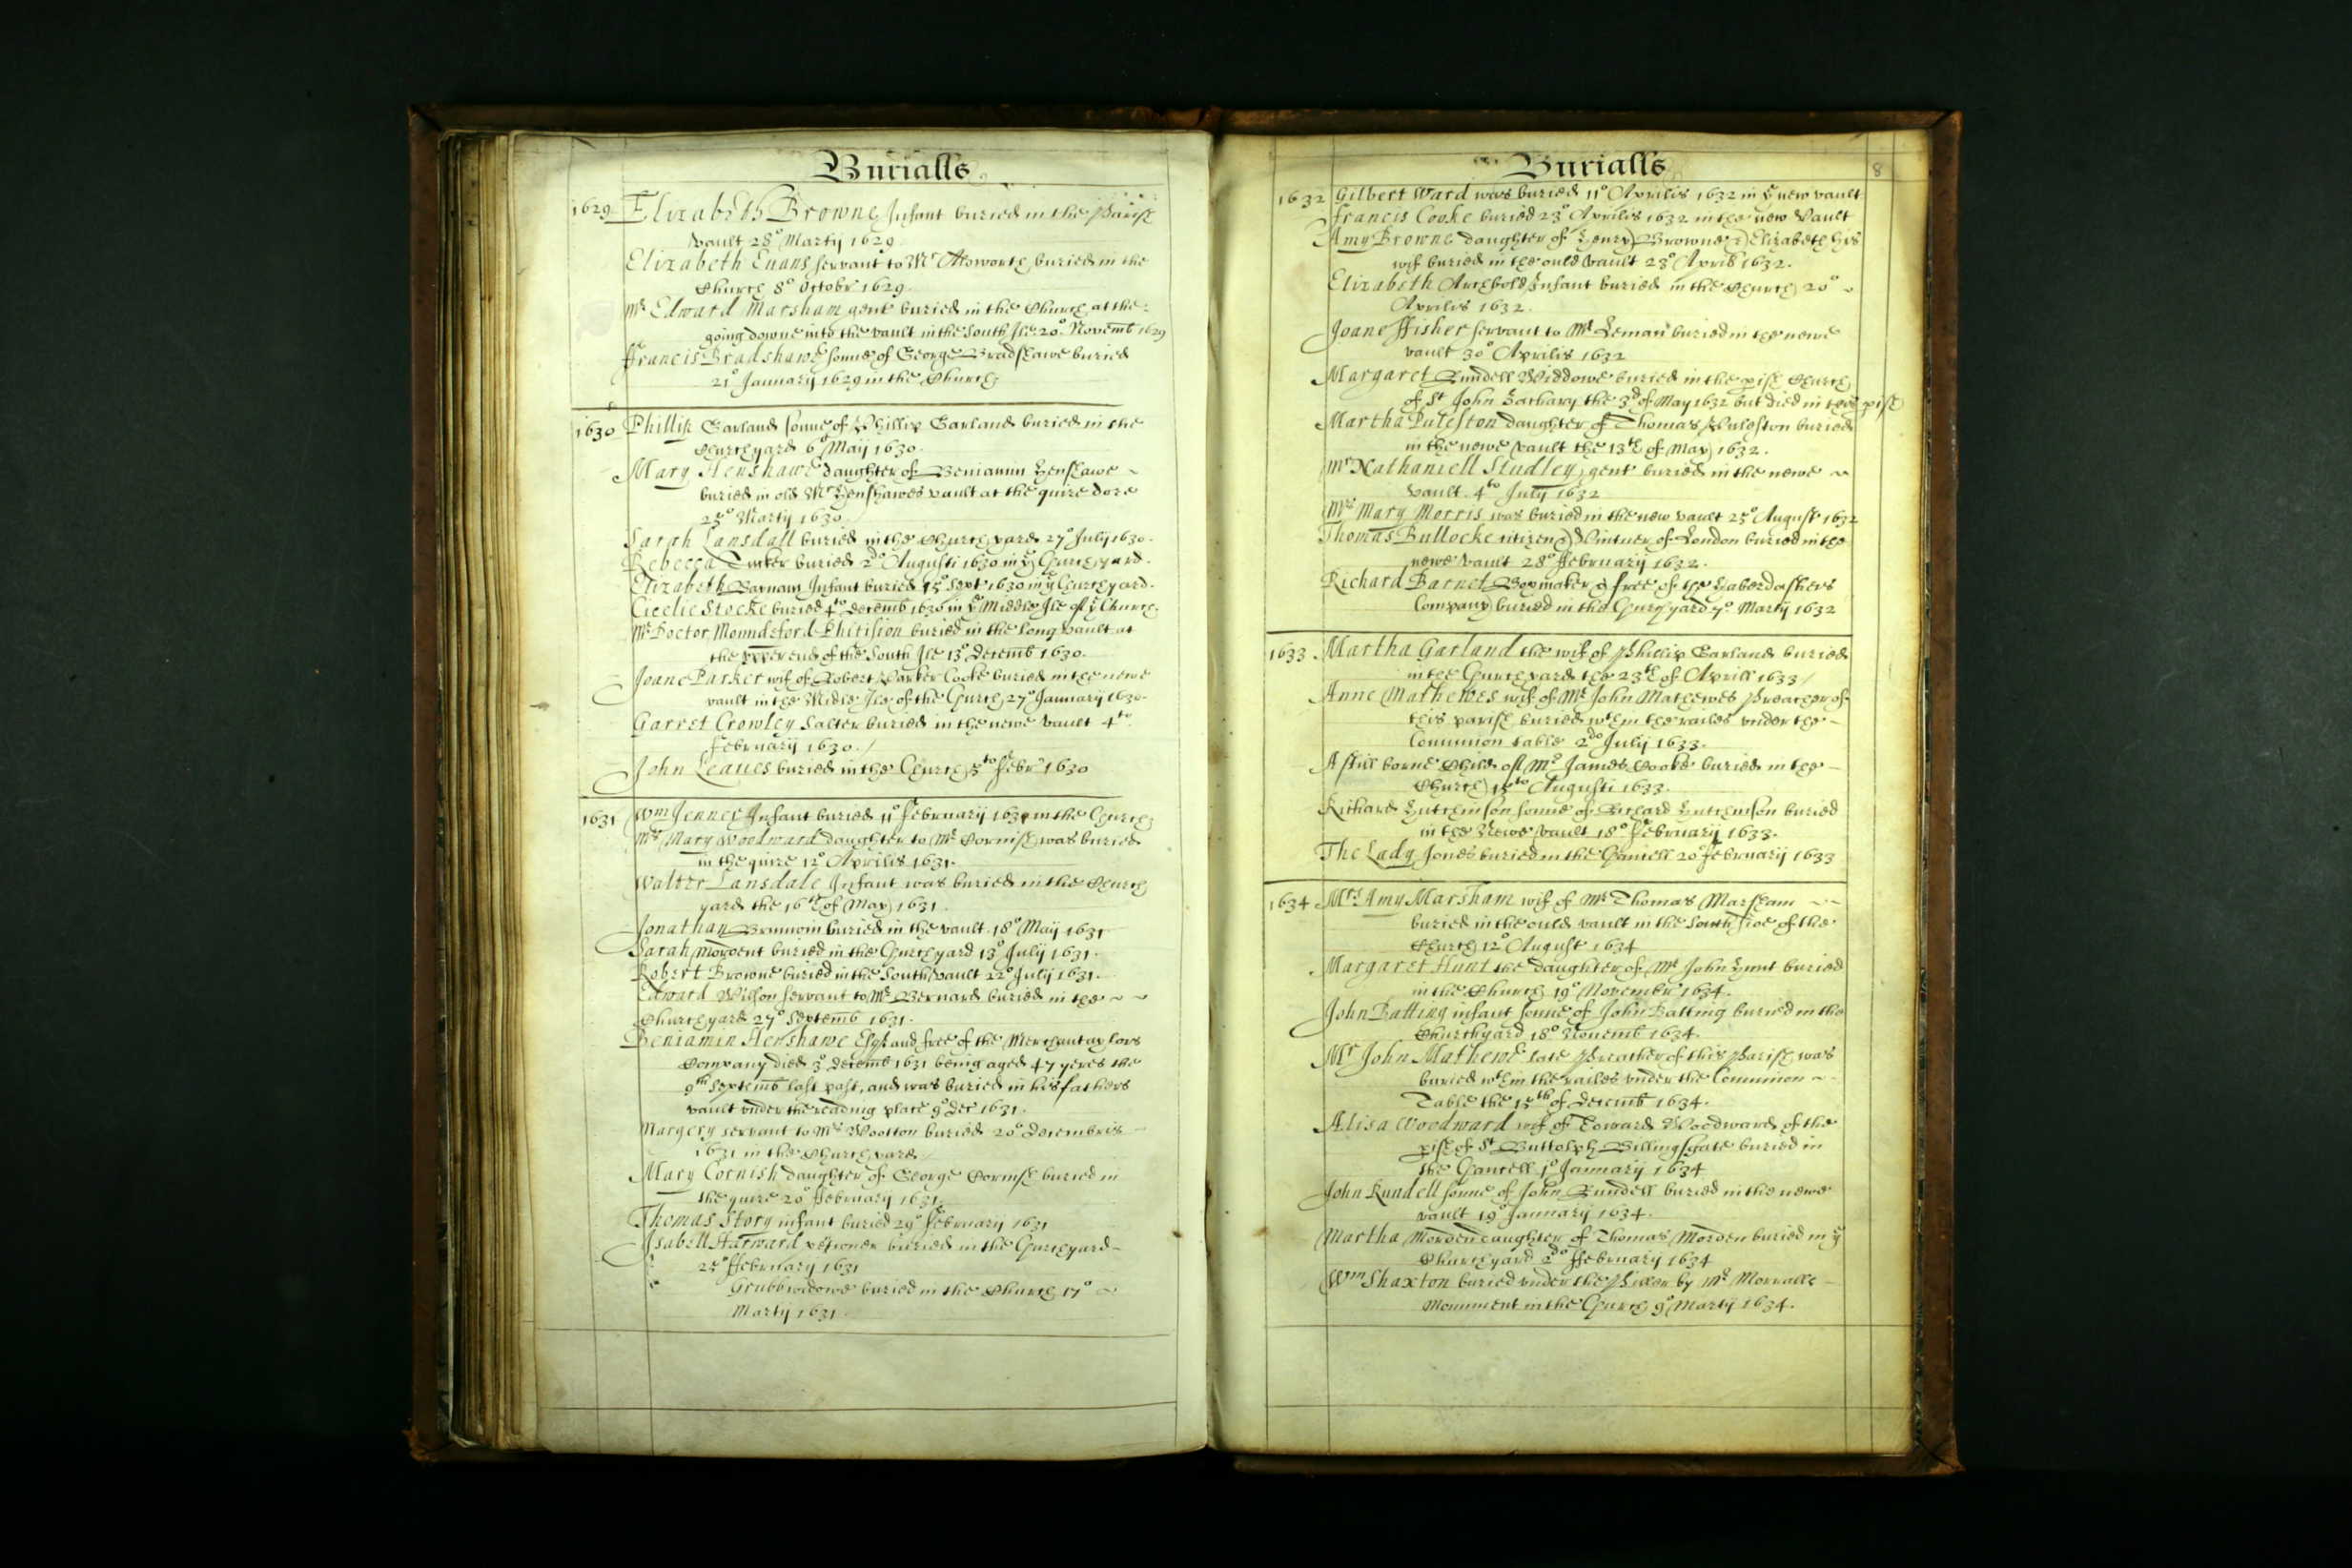 Burialls
1629 Elizabeth Browne Infant buried in the Parish
vault 28º Martij 1629
Elizabeth Euans servant to Mr buried in the
Church 8º Octobr 1629.
Mr Edward Marsham gent buried in the Church at the
going downe into the vault in the South Ile 20º Novemb 1629
Francis Bradshawe sonne of George Bradshawe buried
21º January 1629 in the Church
1630 Phillip Garland sonne of Phillip Garland buried in the
Churchyard 6º Maij 1630.
Mary Henshawe daughter of Beniamin Henshawe
buried in old Mr Henshawes vault at the quire dore
25º Martij 1630
Sarah Lansdall buried in the Churchyard 27º July 1630.
Rebecca Tucker buried 2do Augusti 1630 in ye Churchyard.
Elizabeth Barnam Infant buried 15º Sept 1630 in ye Churchyard.
Cicelie Stocke buried 4to Decemb 1630 in ye Middle Ile of ye Church.
Mr Doctor Moundeford Phitision buried in the long vault at
the vpper end of the South Ile 13º Decemb 1630.
Joane Parker wife of Robert Parker Cooke buried in the newe
vault in the Midle Ile of the Church 27º January 1630.
Garret Crowley Salter buried in the newe vault 4to
February 1630. /
John Leaues buried in the Church 5to Febr 1630
1631 Wm Jenner Infant buried 11º February 1630 in the Church
Mrs Mary Woodward daughter to Mr Cornish was buried
in the quire 12º Aprilis 1631.
Walter Lansdale Infant was buried in the Church
yard the 16th of May 1631
Jonathan buried in the vault 18º Maij 1631
Sarah Mordent buried in the Churchyard 13º July 1631.
Robert Browne buried in the South vault 22º July 1631.
Edward Wilson servant to Mr Bernard buried in the
Churchyard 27º Septemb 1631.
Beniamin Henshawe Esqr and free of the Merchantaylors
Company died 3º Decemb 1631 being aged 47 yeres the
9th Septemb last past, and was buried in his fathers
vault vnder the reading place 9º Dec 1631.
Margery servant to Mr Wootton buried 20º Decembris
1631 in the Churchyard
Mary Cornish daughter of George Cornish buried in
the quire 20º February 1631.
Thomas Story infant buried 29º February 1631
Isabell Harward buried in the Churchyard
25º February 1631
Grubb widowe buried in the Church 17º
Martij 1631.
Burialls
8
1632 Gilbert Ward was buried 11º Aprilis 1632 in ye new vault
Francis Cooke buried 23º Aprilis 1632 in the new Vault
Amy Browne daughter of Henry Browne & Elizabeth his
wife buried in the ould vault 23º April 1632.
Elizabeth Archbold Infant buried in the Church 20º
Aprilis 1632.
Joane Fisher servant to Mr Leman buried in the newe
vault 30º Aprilis 1632
Margaret Rundell Widdowe buried in the pish Church
of St John Zachary the 3d of May 1632 but died in this pish
Martha Puleston daughter of Thomas Puleston buried
in the newe vault the 13th of May 1632.
Mr Nathaniell Studley gent buried in the newe
vault 4to July 1632
Mrs Mary Morris was buried in the new vault 25º August 1632
Thomas Bullocke citizen & Vintner of London buried in the
newe vault 28º February 1632.
Richard Barnet Boxmaker & free of the Haberdashers
Company buried in the Churchyard 7º Martij 1632
1633 Martha Garland the wife of Phillip Garland buried
in the Churchyard the 23th of Aprill 1633 /
Anne Mathewes wife of Mr John Mathewes Preacher of
this parish buried wthin the railes vnder the
Comunion table 2do July 1633.
A still borne Child of Mr James Cooke buried in the
Church 15to Augusti 1633.
Richard Hutchinson sonne of Richard Hutchinson buried
in the Newe vault 18º February 1633.
The Lady Jones buried in the Chancell 20º February 1633
1634 Mrs Amy Marsham wife of Mr Thomas Marsham
buried in the ould vault in the South side of the
Church 12º August 1634
Margaret Hunt the daughter of Mr John Hunt buried
in the Church 19º November 1634.
John Batting infant sonne of John Batting buried in the
Churchyard 18º Nouemb 1634.
Mr John Mathewe late Preacher of this Parish was
buried wthin the railes vnder the Comunion
Table the 15th of Decemb 1634.
Alisa Woodward wife of Edward Woodward of the
pish of St Buttolph Billingsgate buried in
the Chancell 1º January 1634
John Rundell sonne of John Rundell buried in the newe
vault 19º January 1634.
Martha Morden daughter of Thomas Morden buried in ye
Churchyard 2do February 1634
Wm Shaxton buried vnder the Piller by Mr Morralls
Monument in the Church 9º Martij 1634.